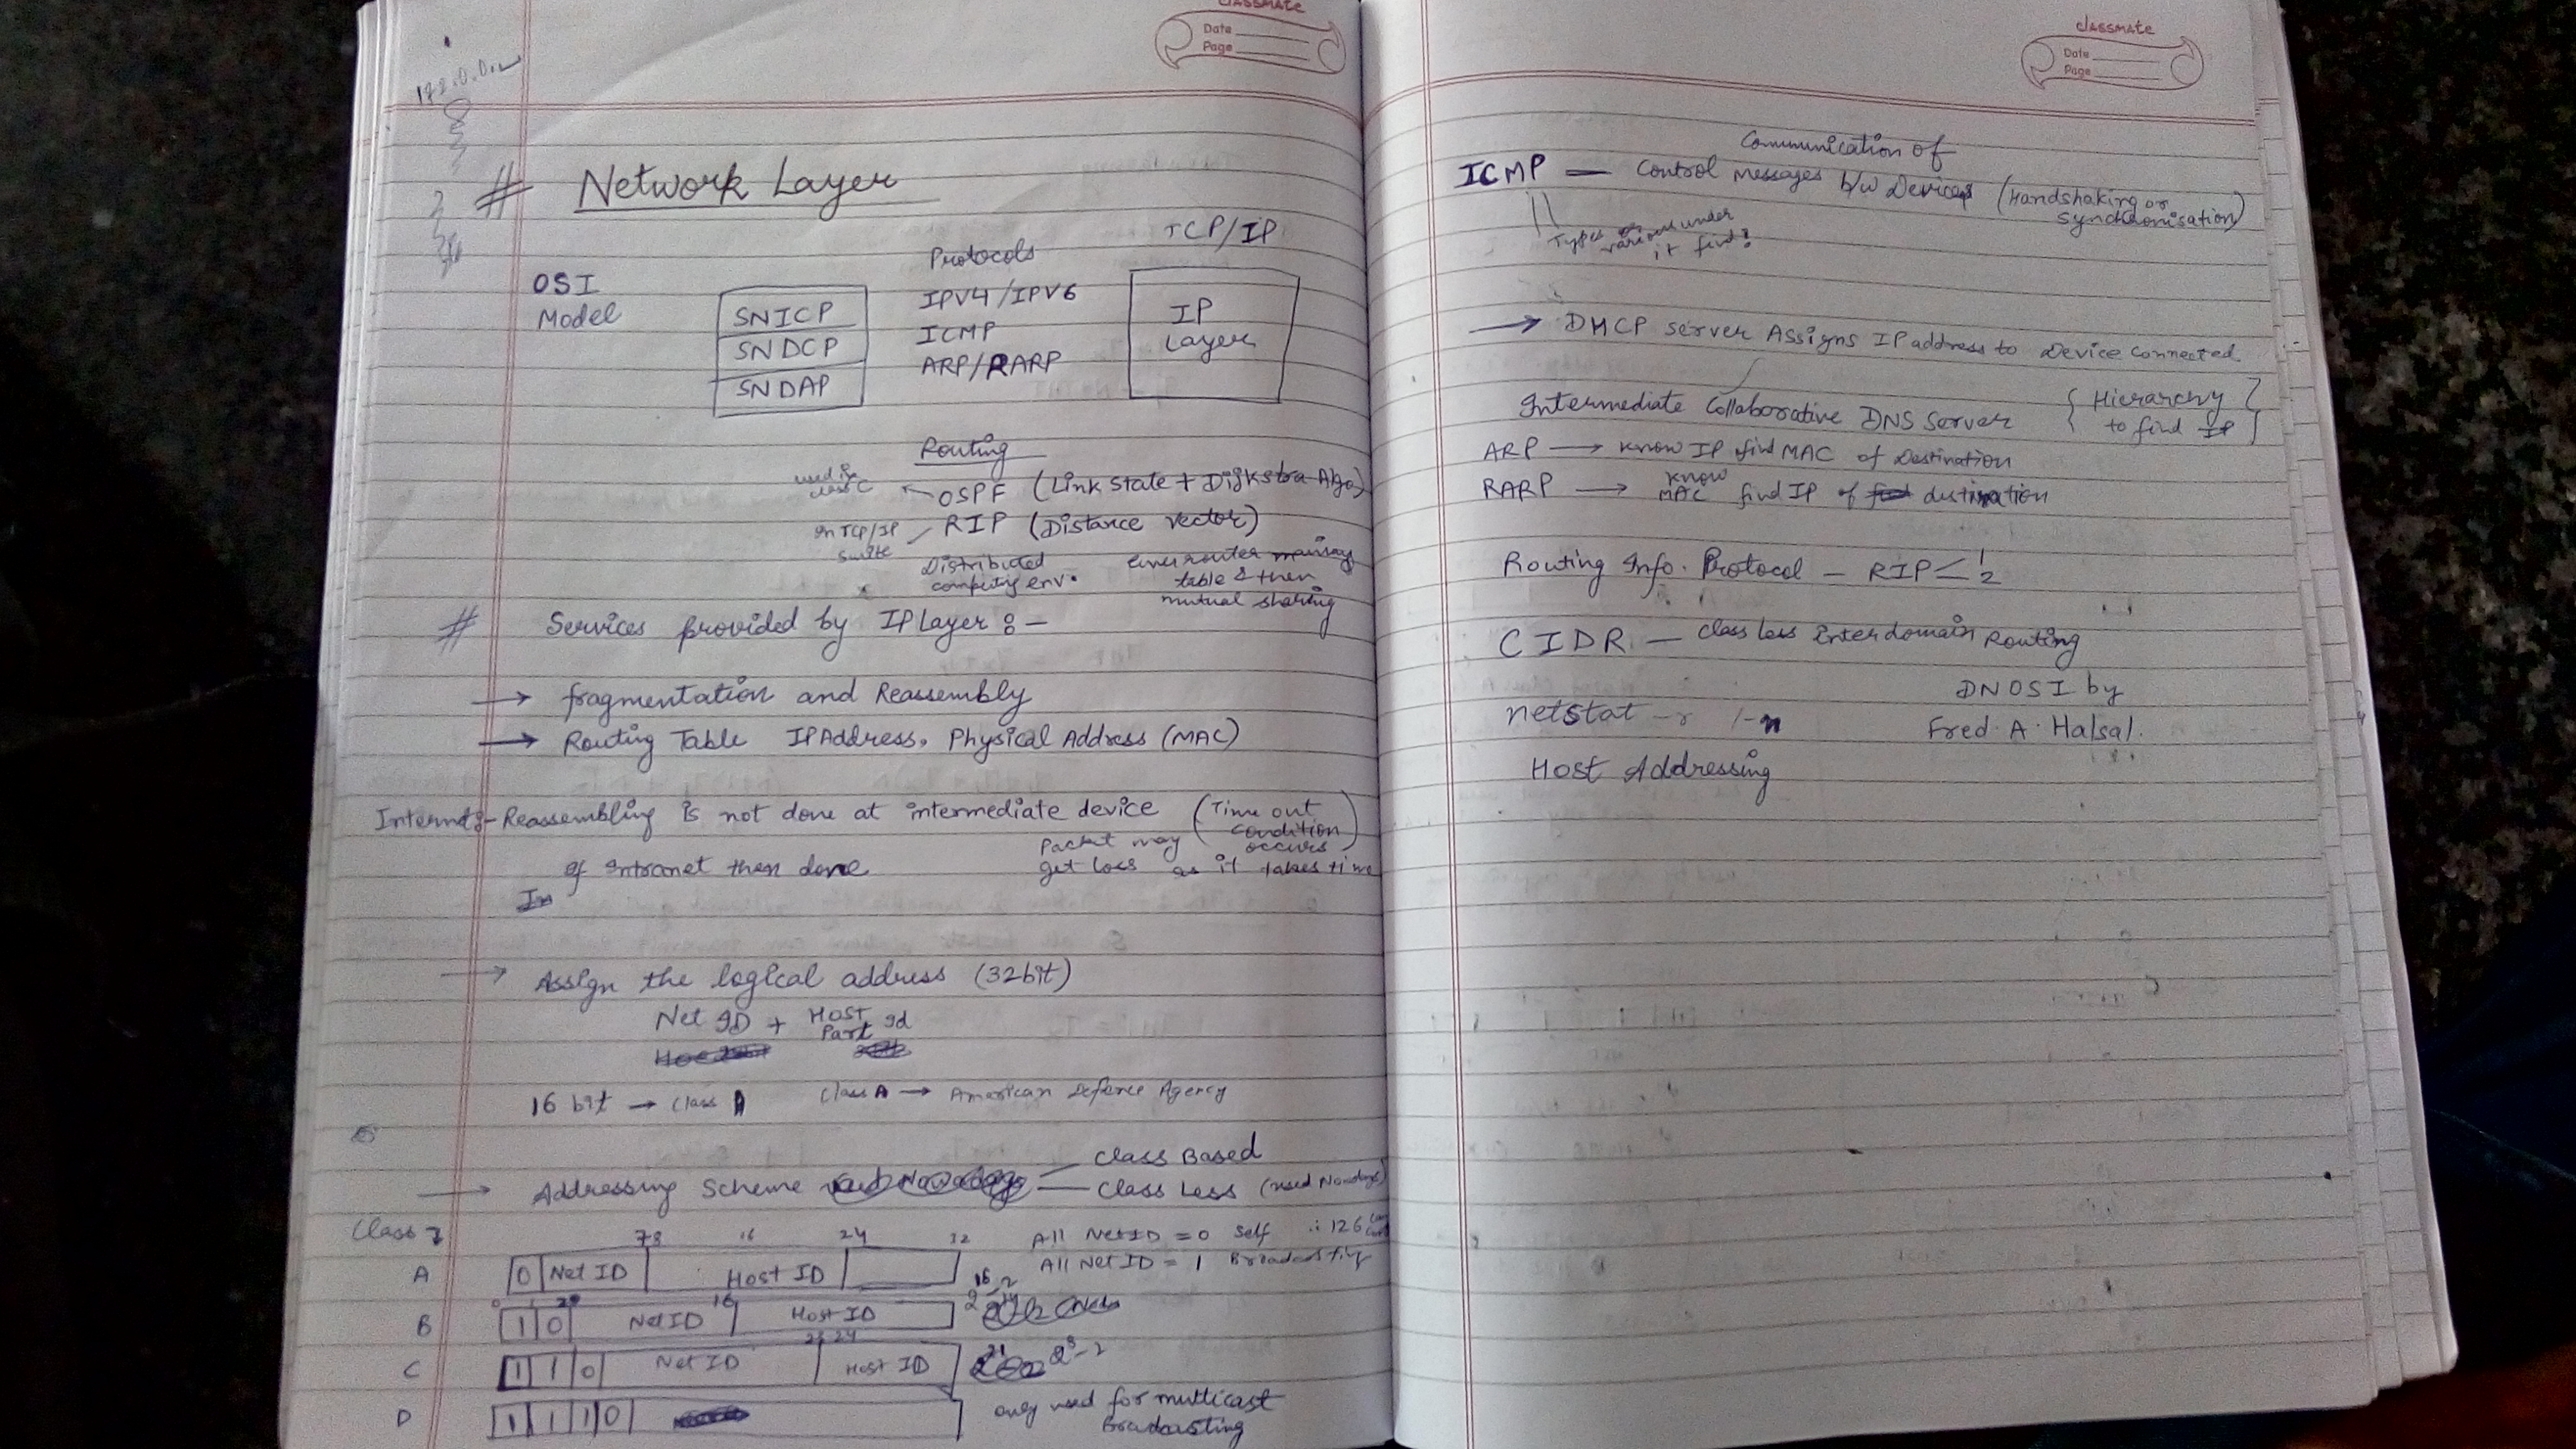 classmate
Date
Page
# Network Layer
OSI Model
SNICP
SNDCP
SNDAP
Protocols
IPV4/IPV6
ICMP
ARP/RARP
TCP/IP
IP Layer
Routing
used in class C
OSPF (Link state + Dijkstra Algo)
In TCP/IP suite
RIP (Distance vector)
Distributed computing env.
table & then
mutual sharing
# Services provided by IP Layer :-
→ fragmentation and Reassembly
→ Routing Table IP Address, Physical Address (MAC)
Internet:- Reassembling is not done at intermediate device (Time out condition occurs)
Packet may get loss as it takes time
If Intranet then done
→ Assign the logical address (32bit)
Net ID + Host Part Id
16 bit → Class A
Class A → American Defence Agency
→ Addressing Scheme
Class Based
Class Less (used Nowadays)
Class
7 8 16 24 32
A 0 Net ID Host ID
All Net ID = 0 Self ∴ 126
All Net ID = 1 Broadcasting
16
B 1 0 Net ID Host ID
2^16-2
23 24
C 1 1 0 Net ID Host ID
2^8-2
D 1 1 1 0
only used for multicast Broadcasting
classmate
Date
Page
Communication of
ICMP — Control Messages b/w Devices (Handshaking or Synchronisation)
Types or various under it find?
→ DHCP server Assigns IP address to Device Connected
Intermediate Collaborative DNS Server { Hierarchy to find IP }
ARP → know IP find MAC of Destination
RARP → know MAC find IP of destination
Routing Info. Protocol — RIP < 1 2
CIDR — Class Less Interdomain Routing
netstat -r /-n
DNOSI by
Fred. A. Halsal.
Host Addressing